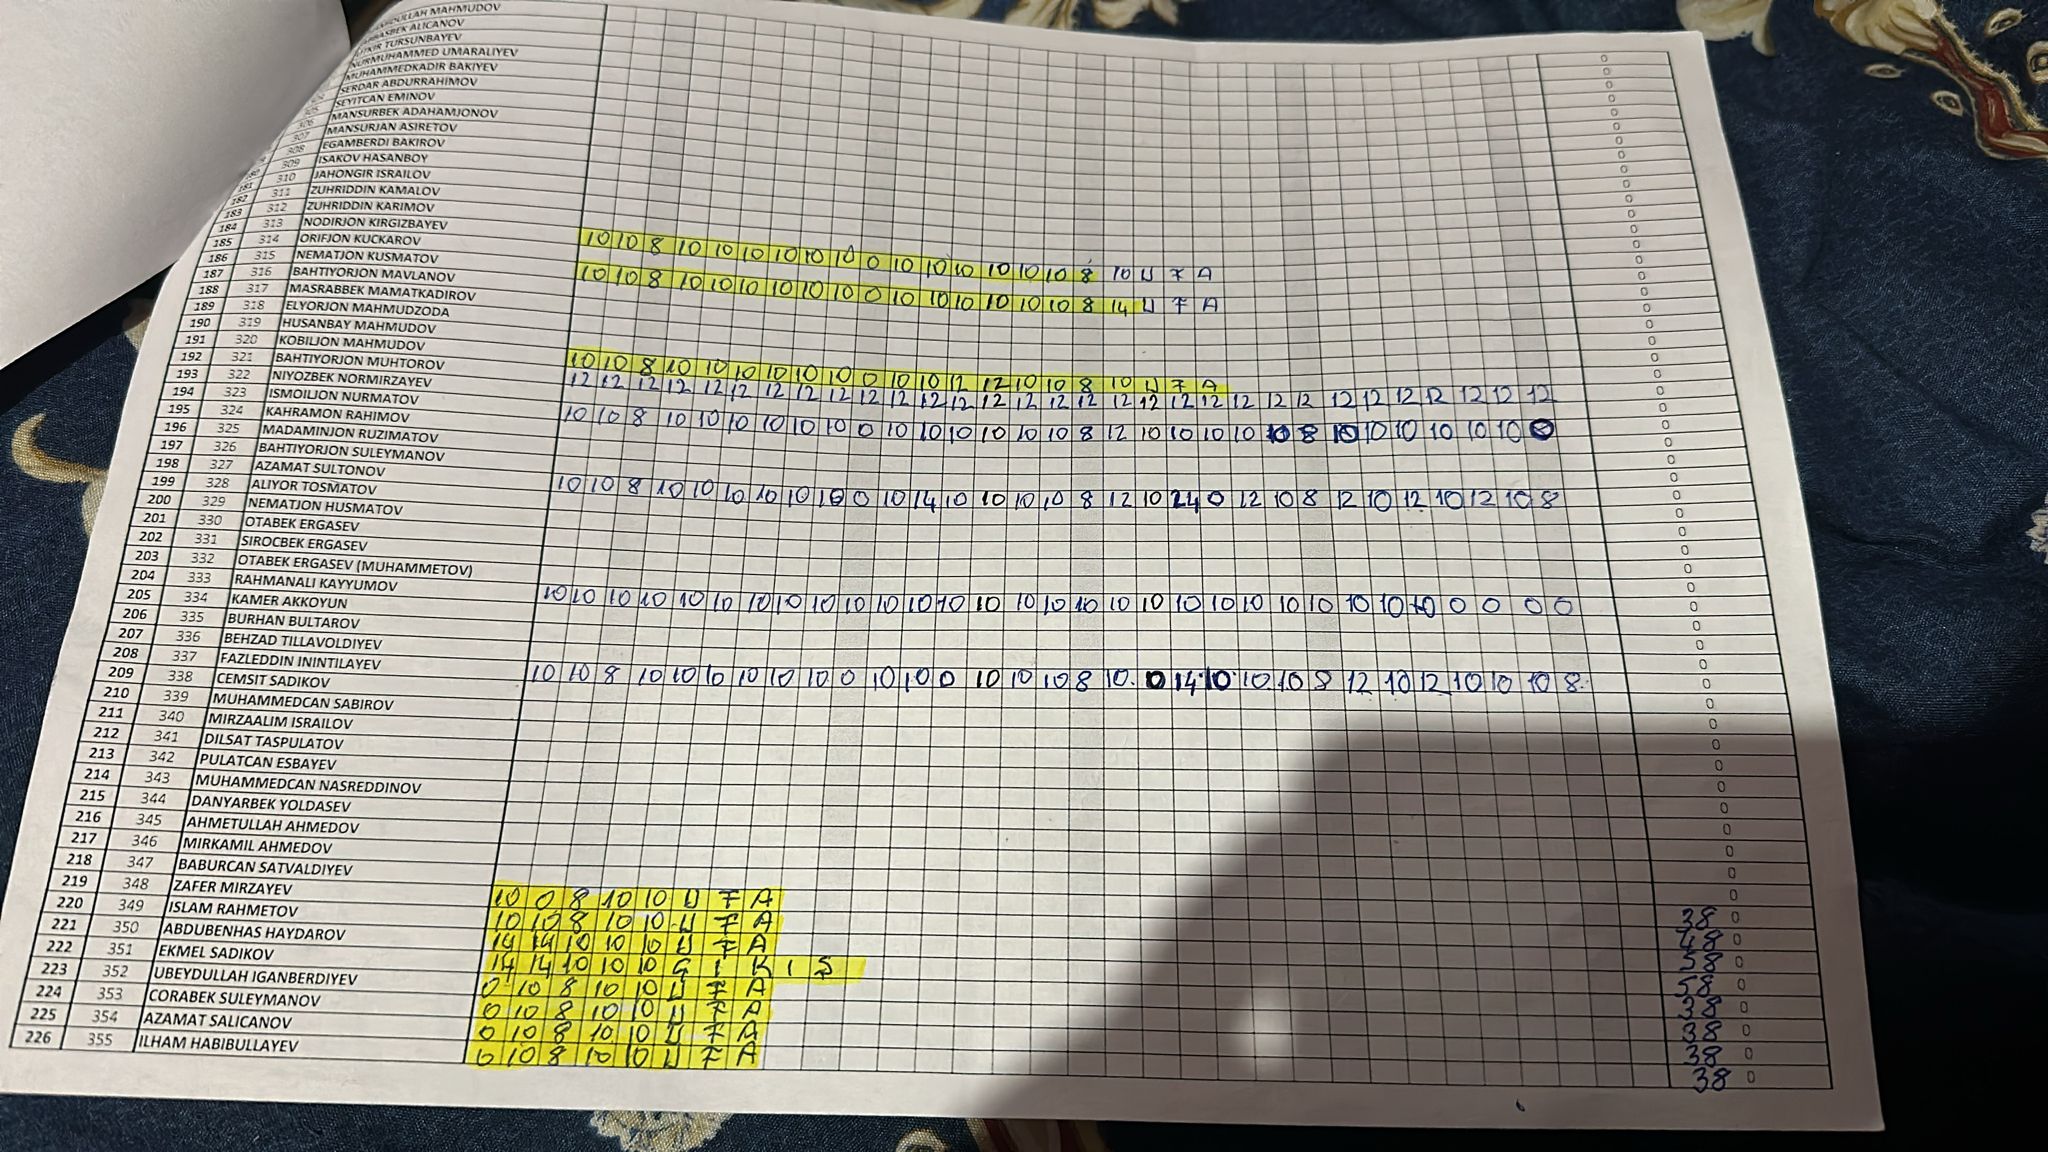 ABDULLAH MAHMUDOV 0
ABBASBEK ALICANOV 0
TURSUNBAYEV 0
NURMUHAMMED UMARALIYEV 0
MUHAMMEDKADIR BAKIYEV 0
SERDAR ABDURRAHIMOV 0
SEYITCAN EMINOV 0
306 MANSURBEK ADAHAMJONOV 0
307 MANSURJAN ASIRETOV 0
308 EGAMBERDI BAKIROV 0
309 ISAKOV HASANBOY 0
180 310 JAHONGIR ISRAILOV 0
181 311 ZUHRIDDIN KAMALOV 0
182 312 ZUHRIDDIN KARIMOV 0
183 313 NODIRJON KIRGIZBAYEV 0
184 314 ORIFJON KUCKAROV 10 10 8 10 10 10 10 10 10 0 10 10 10 10 10 10 8 10 U F A 0
185 315 NEMATJON KUSMATOV 0
186 316 BAHTIYORJON MAVLANOV 10 10 8 10 10 10 10 10 10 0 10 10 10 10 10 10 8 14 U F A 0
187 317 MASRABBEK MAMATKADIROV 0
188 318 ELYORJON MAHMUDZODA 0
189 319 HUSANBAY MAHMUDOV 0
190 320 KOBILJON MAHMUDOV 0
191 321 BAHTIYORJON MUHTOROV 10 10 8 10 10 10 10 10 10 0 10 10 12 12 10 10 8 10 U F A 0
192 322 NIYOZBEK NORMIRZAYEV 12 12 12 12 12 12 12 12 12 12 12 12 12 12 12 12 12 12 12 12 12 12 12 12 12 12 12 12 12 12 12 0
193 323 ISMOILJON NURMATOV 0
194 324 KAHRAMON RAHIMOV 10 10 8 10 10 10 10 10 10 0 10 10 10 10 10 10 8 12 10 10 10 10 10 8 10 10 10 10 10 10 0
195 325 MADAMINJON RUZIMATOV 0
196 326 BAHTIYORJON SULEYMANOV 0
197 327 AZAMAT SULTONOV 0
198 328 ALIYOR TOSMATOV 10 10 8 10 10 10 10 10 10 0 10 14 10 10 10 10 8 12 10 14 0 12 10 8 12 10 12 10 12 10 8 0
199 329 NEMATJON HUSMATOV 0
200 330 OTABEK ERGASEV 0
201 331 SIROCBEK ERGASEV 0
202 332 OTABEK ERGASEV (MUHAMMETOV) 0
203 333 RAHMANALI KAYYUMOV 0
204 334 KAMER AKKOYUN 10 10 10 10 10 10 10 10 10 10 10 10 10 10 10 10 10 10 10 10 10 10 10 10 10 10 10 0 0 0 0 0
205 335 BURHAN BULTAROV 0
206 336 BEHZAD TILLAVOLDIYEV 0
207 337 FAZLEDDIN ININTILAYEV 0
208 338 CEMSIT SADIKOV 10 10 8 10 10 10 10 10 10 0 10 10 0 10 10 10 8 10 0 14 10 10 10 8 12 10 12 10 10 10 8 0
209 339 MUHAMMEDCAN SABIROV 0
210 340 MIRZAALIM ISRAILOV 0
211 341 DILSAT TASPULATOV 0
212 342 PULATCAN ESBAYEV 0
213 343 MUHAMMEDCAN NASREDDINOV 0
214 344 DANYARBEK YOLDASEV 0
215 345 AHMETULLAH AHMEDOV 0
216 346 MIRKAMIL AHMEDOV 0
217 347 BABURCAN SATVALDIYEV 0
218 348 ZAFER MIRZAYEV 10 0 8 10 10 U F A 38 0
219 349 ISLAM RAHMETOV 10 10 8 10 10 U F A 48 0
220 350 ABDUBENHAS HAYDAROV 14 14 10 10 10 U F A 58 0
221 351 EKMEL SADIKOV 14 14 10 10 10 G I R I Ş 58 0
222 352 UBEYDULLAH IGANBERDIYEV 0 10 8 10 10 U F A 38 0
223 353 CORABEK SULEYMANOV 0 10 8 10 10 U F A 38 0
224 354 AZAMAT SALICANOV 0 10 8 10 10 U F A 38 0
225 355 ILHAM HABIBULLAYEV 0 10 8 10 10 U F A 38 0
226